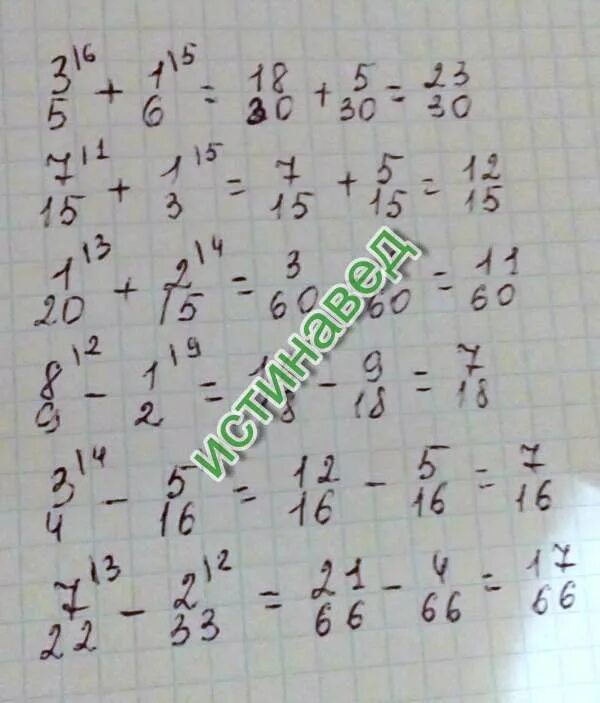 3\6/5 + 1\5/6 = 18/30 + 5/30 = 23/30
7\1/15 + 1\5/3 = 7/15 + 5/15 = 12/15
1\3/20 + 2\4/15 = 3/60 60 = 11/60
8\2/9 - 1\9/2 = 1 8 - 9/18 = 7/18
3\4/4 - 5/16 = 12/16 - 5/16 = 7/16
7\3/22 - 2\2/33 = 21/66 - 4/66 = 17/66
истинавед